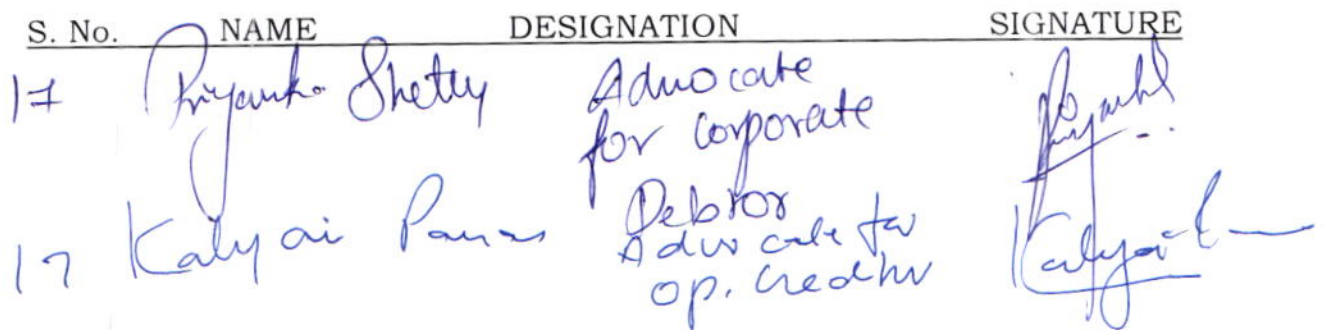 S. No. NAME DESIGNATION SIGNATURE
17 Priyanka Shetty Advocate
for corporate
Debtor
17 Kalyani Advocate for
op. Creditor